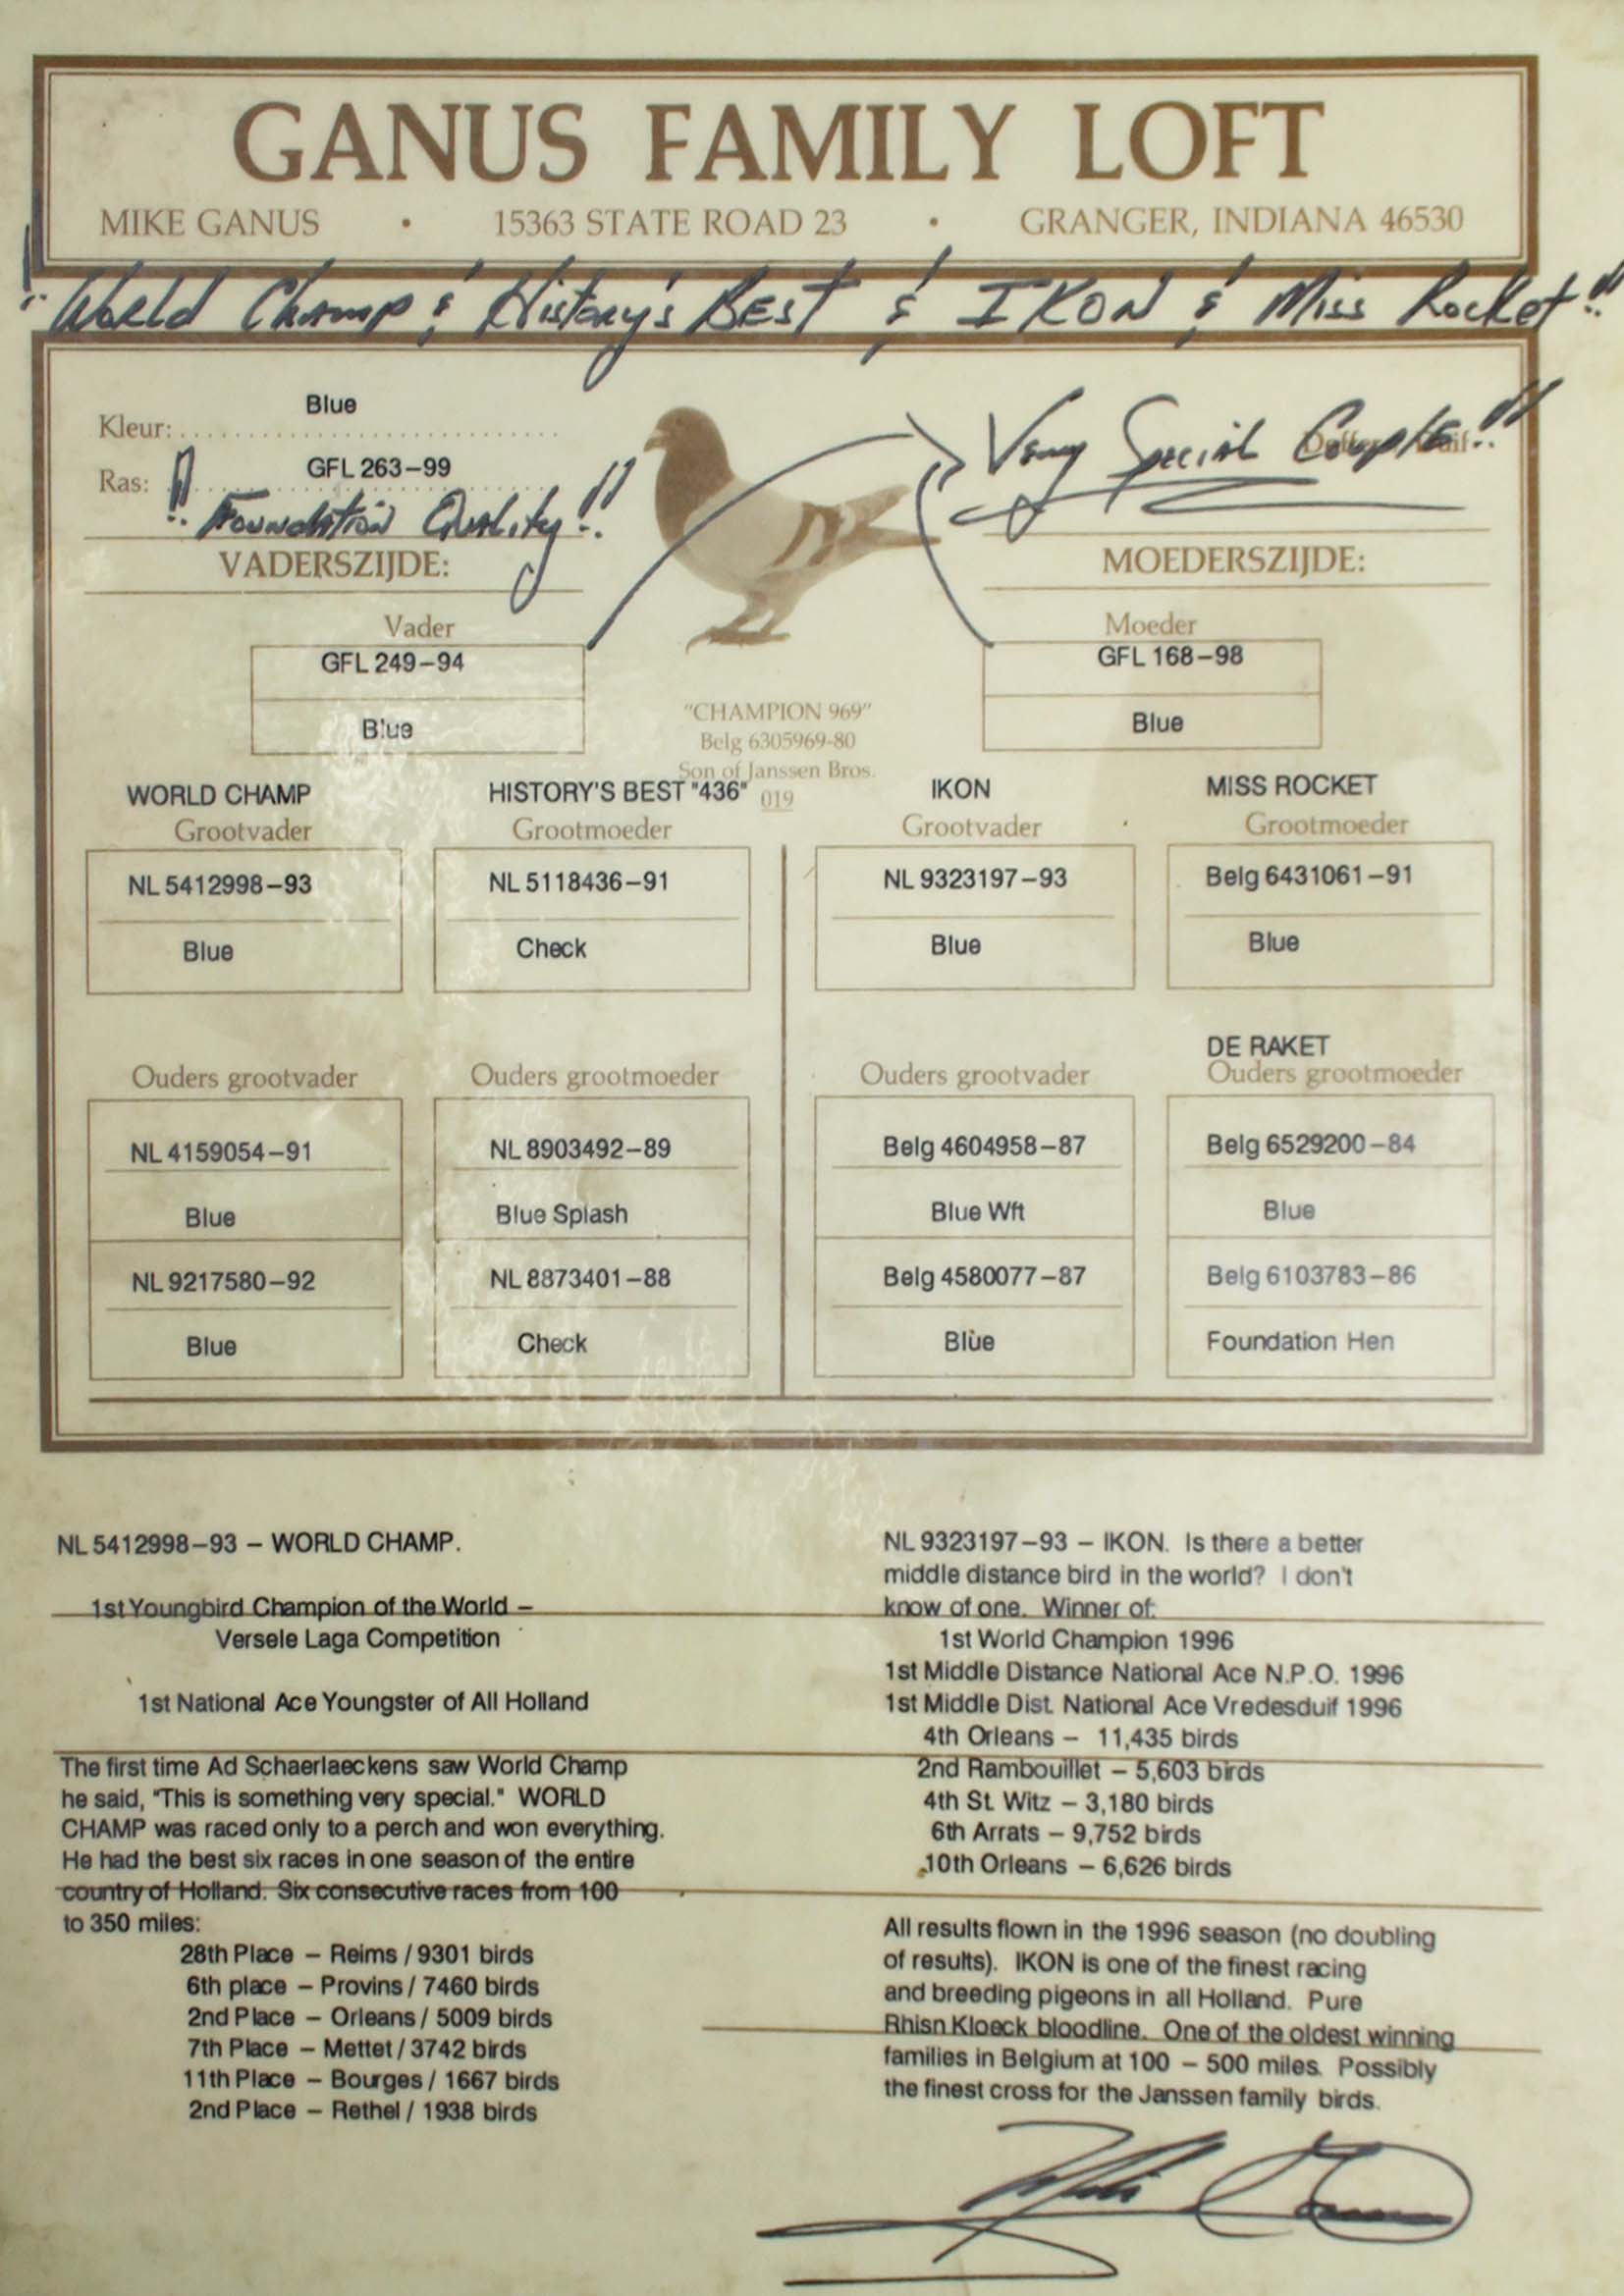 GANUS FAMILY LOFT
MIKE GANUS • 15363 STATE ROAD 23 • GRANGER, INDIANA 46530
"World Champ & History's Best & IKON & Miss Rocket"!!
Blue
Kleur:
GFL 263-99
Ras:
!! Foundation Quality!!
Very Special Couple!!
VADERSZIJDE: MOEDERSZIJDE:
Vader Moeder
GFL 249-94 GFL 168-98
Blue Blue
"CHAMPION 969"
Belg 6305969-80
Son of Janssen Bros.
019
WORLD CHAMP HISTORY'S BEST "436" IKON MISS ROCKET
Grootvader Grootmoeder Grootvader Grootmoeder
NL 5412998-93 NL 5118436-91 NL 9323197-93 Belg 6431061-91
Blue Check Blue Blue
DE RAKET
Ouders grootvader Ouders grootmoeder Ouders grootvader Ouders grootmoeder
NL 4159054-91 NL 8903492-89 Belg 4604958-87 Belg 6529200-84
Blue Blue Splash Blue Wft Blue
NL 9217580-92 NL 8873401-88 Belg 4580077-87 Belg 6103783-86
Blue Check Blue Foundation Hen
NL 5412998-93 - WORLD CHAMP.
1st Youngbird Champion of the World -
Versele Laga Competition
1st National Ace Youngster of All Holland
The first time Ad Schaerlaeckens saw World Champ
he said, "This is something very special." WORLD
CHAMP was raced only to a perch and won everything.
He had the best six races in one season of the entire
country of Holland. Six consecutive races from 100
to 350 miles:
28th Place - Reims / 9301 birds
6th place - Provins / 7460 birds
2nd Place - Orleans / 5009 birds
7th Place - Mettet / 3742 birds
11th Place - Bourges / 1667 birds
2nd Place - Rethel / 1938 birds
NL 9323197-93 - IKON. Is there a better
middle distance bird in the world? I don't
know of one. Winner of:
1st World Champion 1996
1st Middle Distance National Ace N.P.O. 1996
1st Middle Dist. National Ace Vredesduif 1996
4th Orleans - 11,435 birds
2nd Rambouillet - 5,603 birds
4th St. Witz - 3,180 birds
6th Arrats - 9,752 birds
10th Orleans - 6,626 birds
All results flown in the 1996 season (no doubling
of results). IKON is one of the finest racing
and breeding pigeons in all Holland. Pure
Rhisn Kloeck bloodline. One of the oldest winning
families in Belgium at 100 - 500 miles. Possibly
the finest cross for the Janssen family birds.